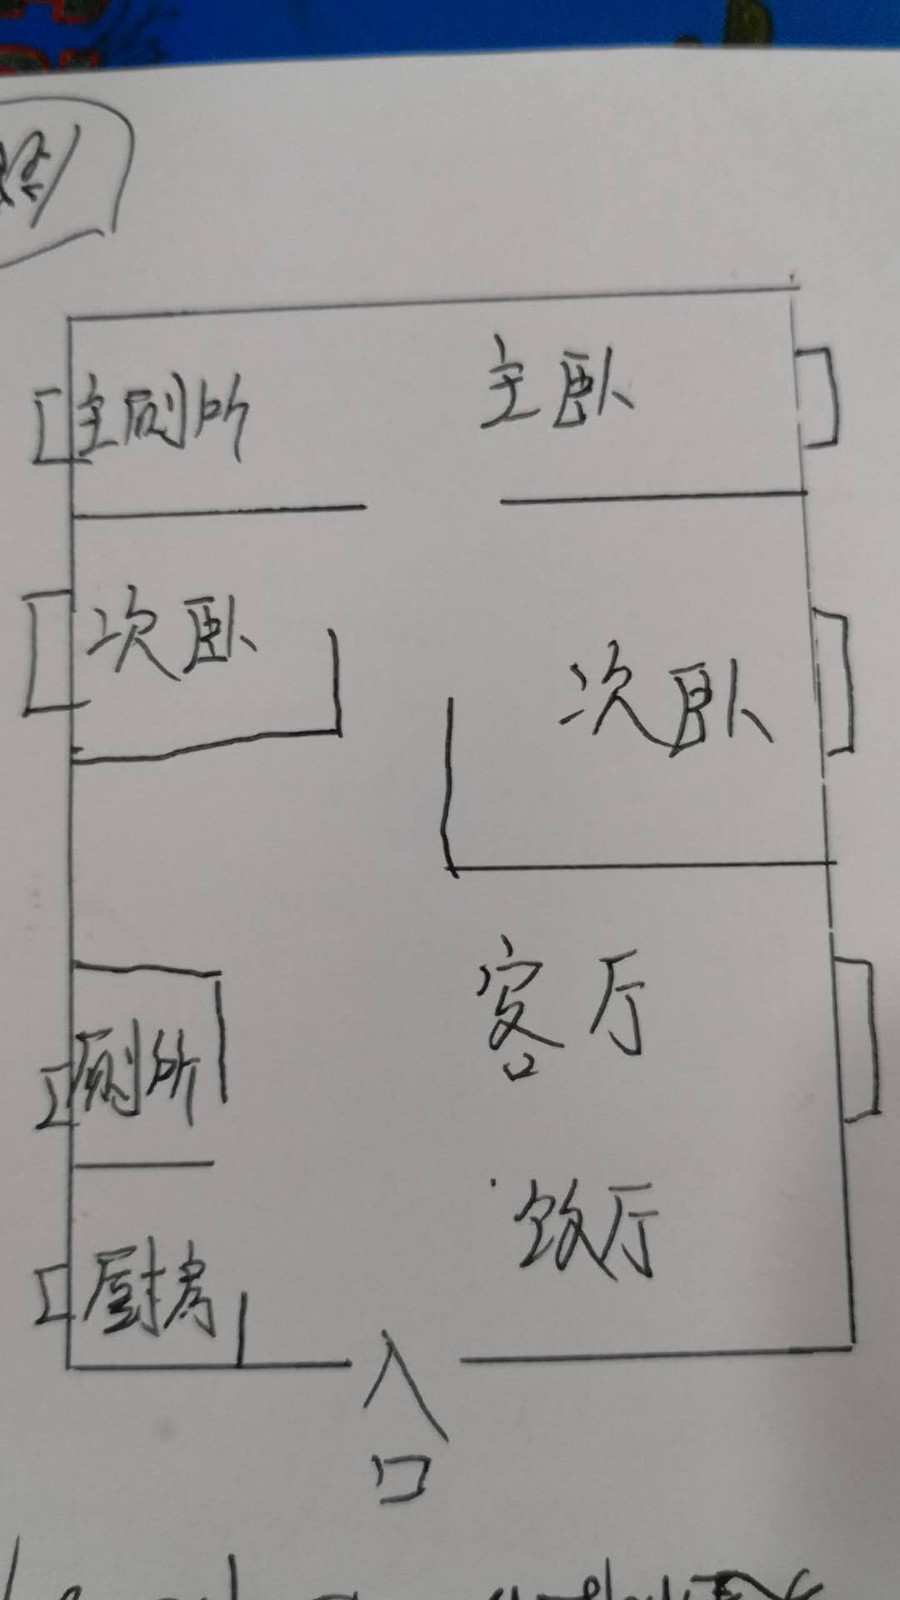 主厕所
主卧
次卧
次卧
客厅
厕所
饮厅
厨房
入
口